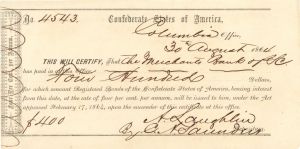 No. 4543. Confederate States of America,
Columbia Office,
30 August 1864
THIS WILL CERTIFY, That the Merchants Bank of SC
has paid in at this office
Four Hundred Dollars,
for which amount Registered Bonds of the Confederate States of America, bearing interest
from this date, at the rate of four per cent. per annum, will be issued to him, under the Act
approved February 17, 1864, upon the surrender of this certificate at this office.
$400